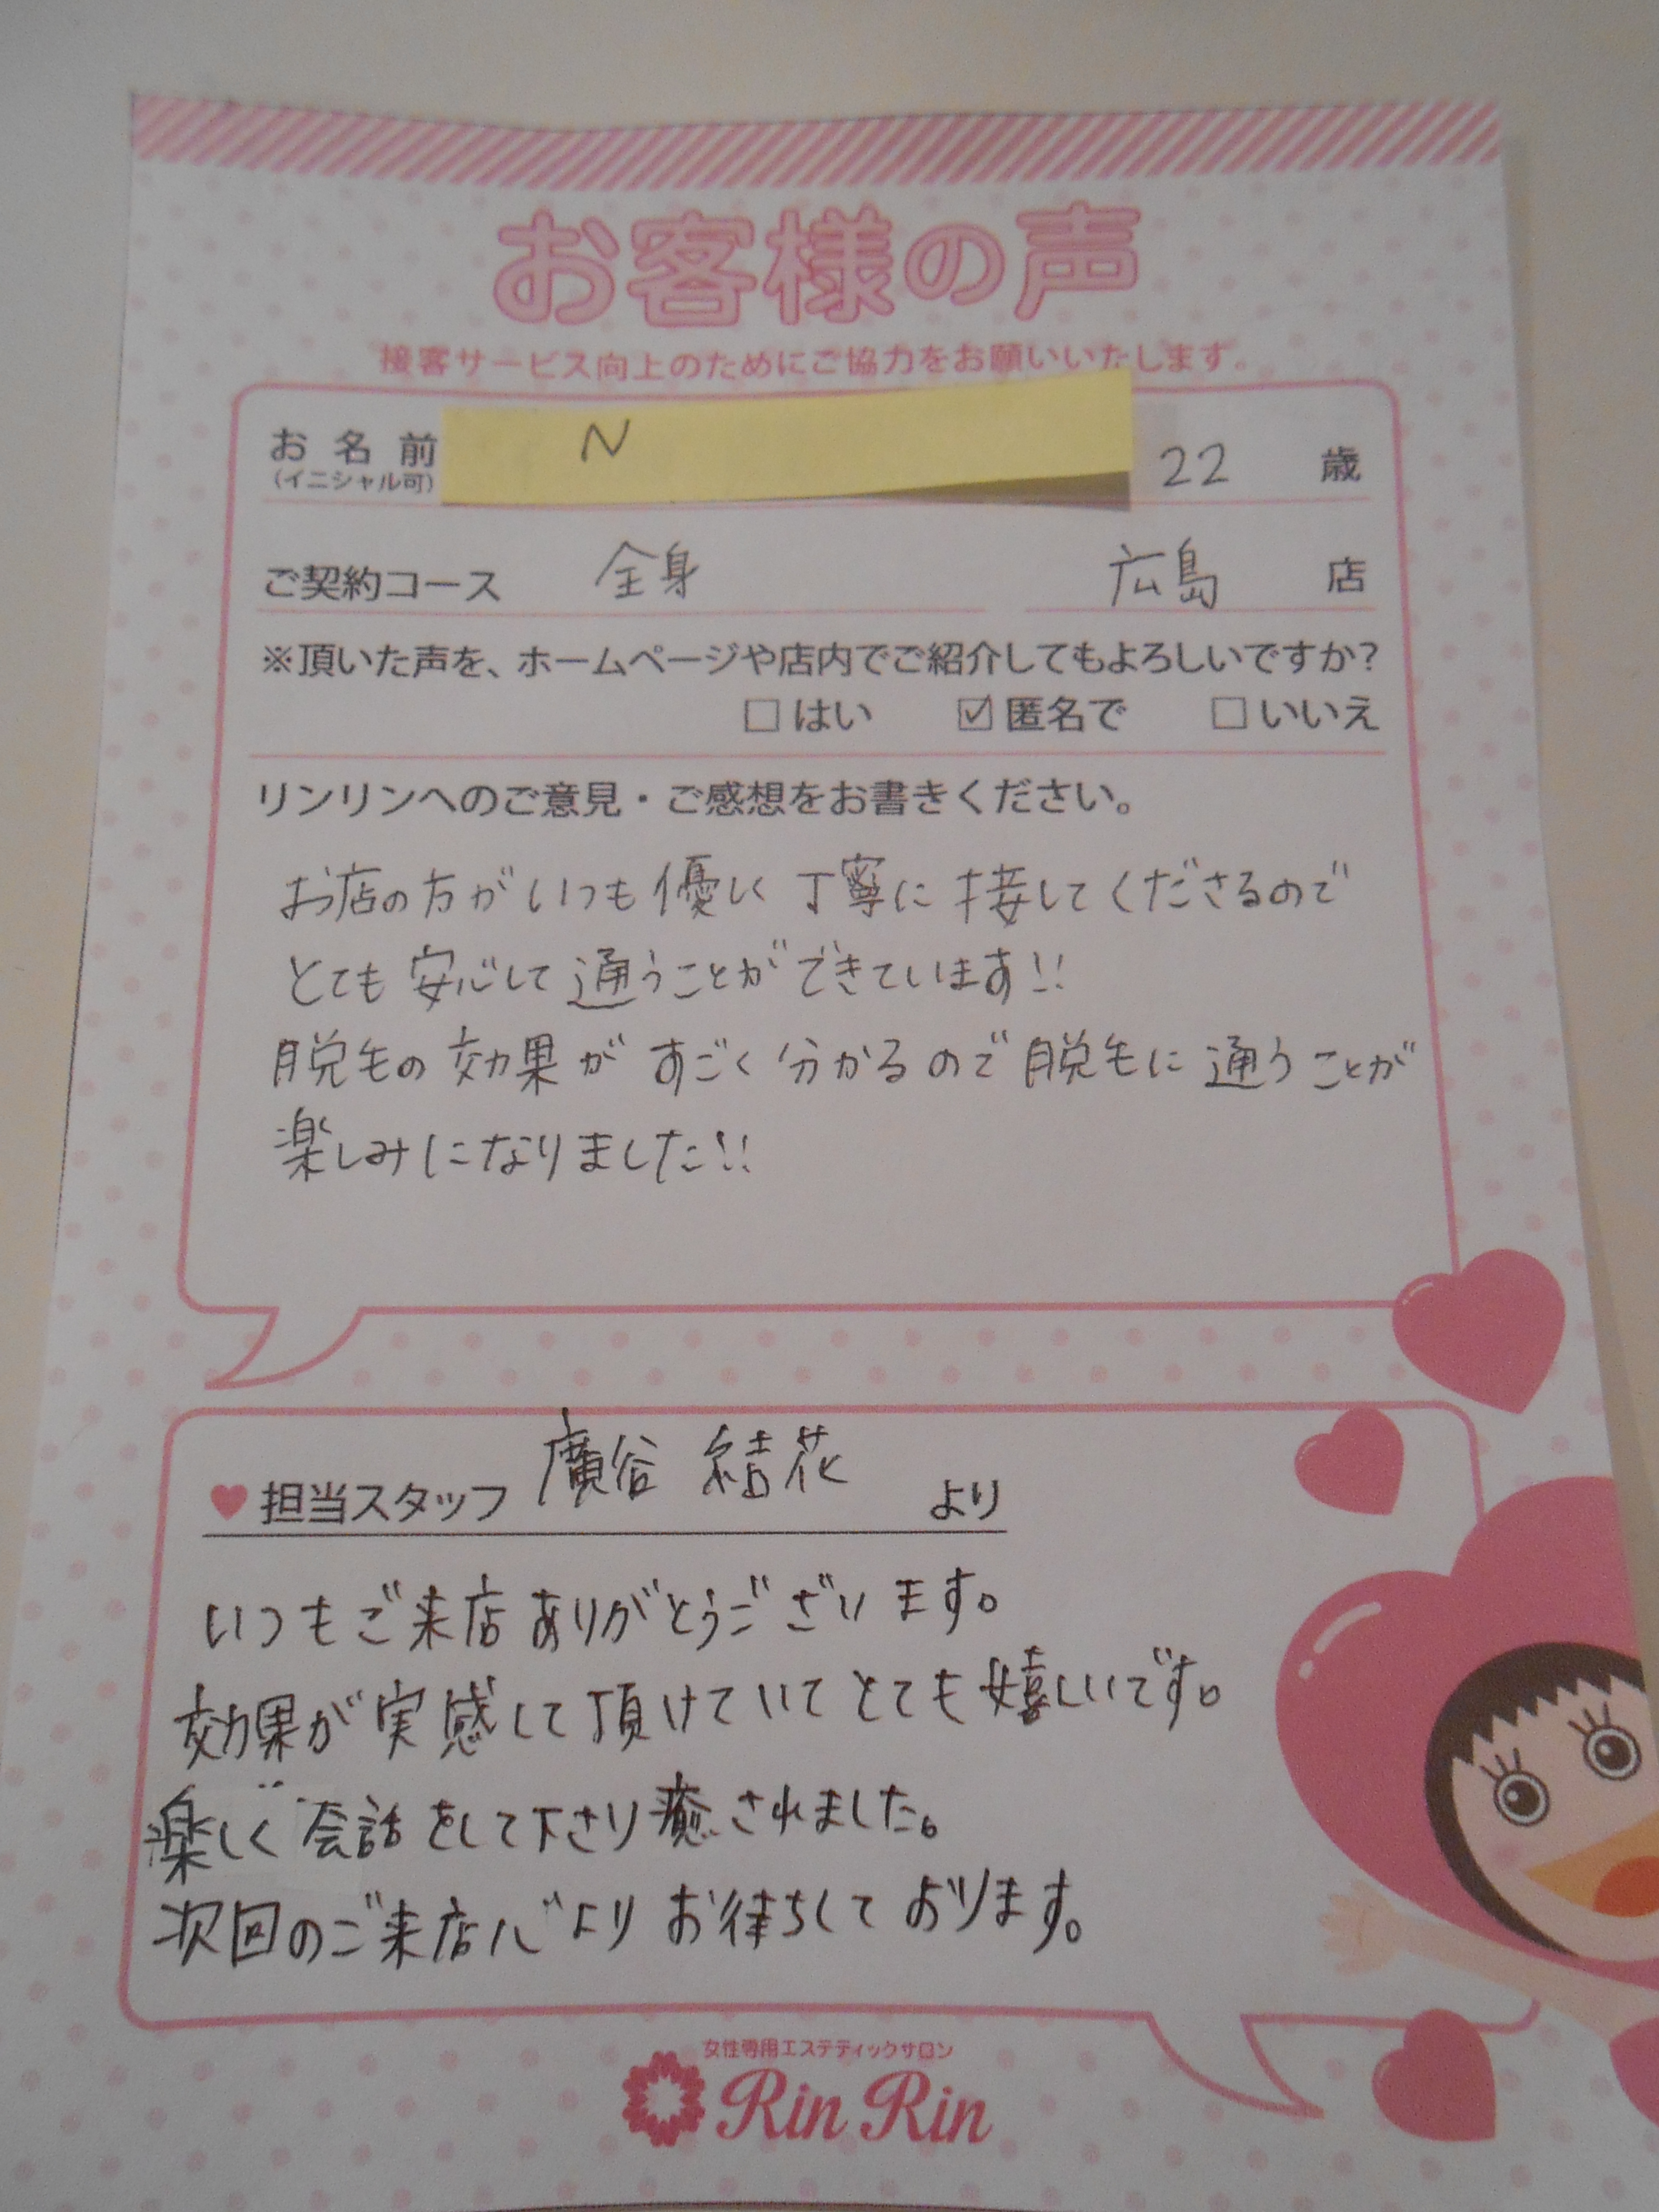 お客様の声
接客サービス向上のためにご協力をお願いいたします。
お名前 N 22 歳
(イニシャル可)
ご契約コース 全身 広島 店
※頂いた声を、ホームページや店内でご紹介してもよろしいですか?
□はい ☑匿名で □いいえ
リンリンへのご意見・ご感想をお書きください。
お店の方がいつも優しく丁寧に接してくださるので
とても安心して通うことができています!!
脱毛の効果がすごく分かるので脱毛に通うことが
楽しみになりました!!
♥担当スタッフ 廣谷 結花 より
いつもご来店ありがとうございます。
効果が実感して頂けていてとても嬉しいです。
楽しく会話をして下さり癒されました。
次回のご来店心よりお待ちしております。
女性専用エステティックサロン
Rin Rin